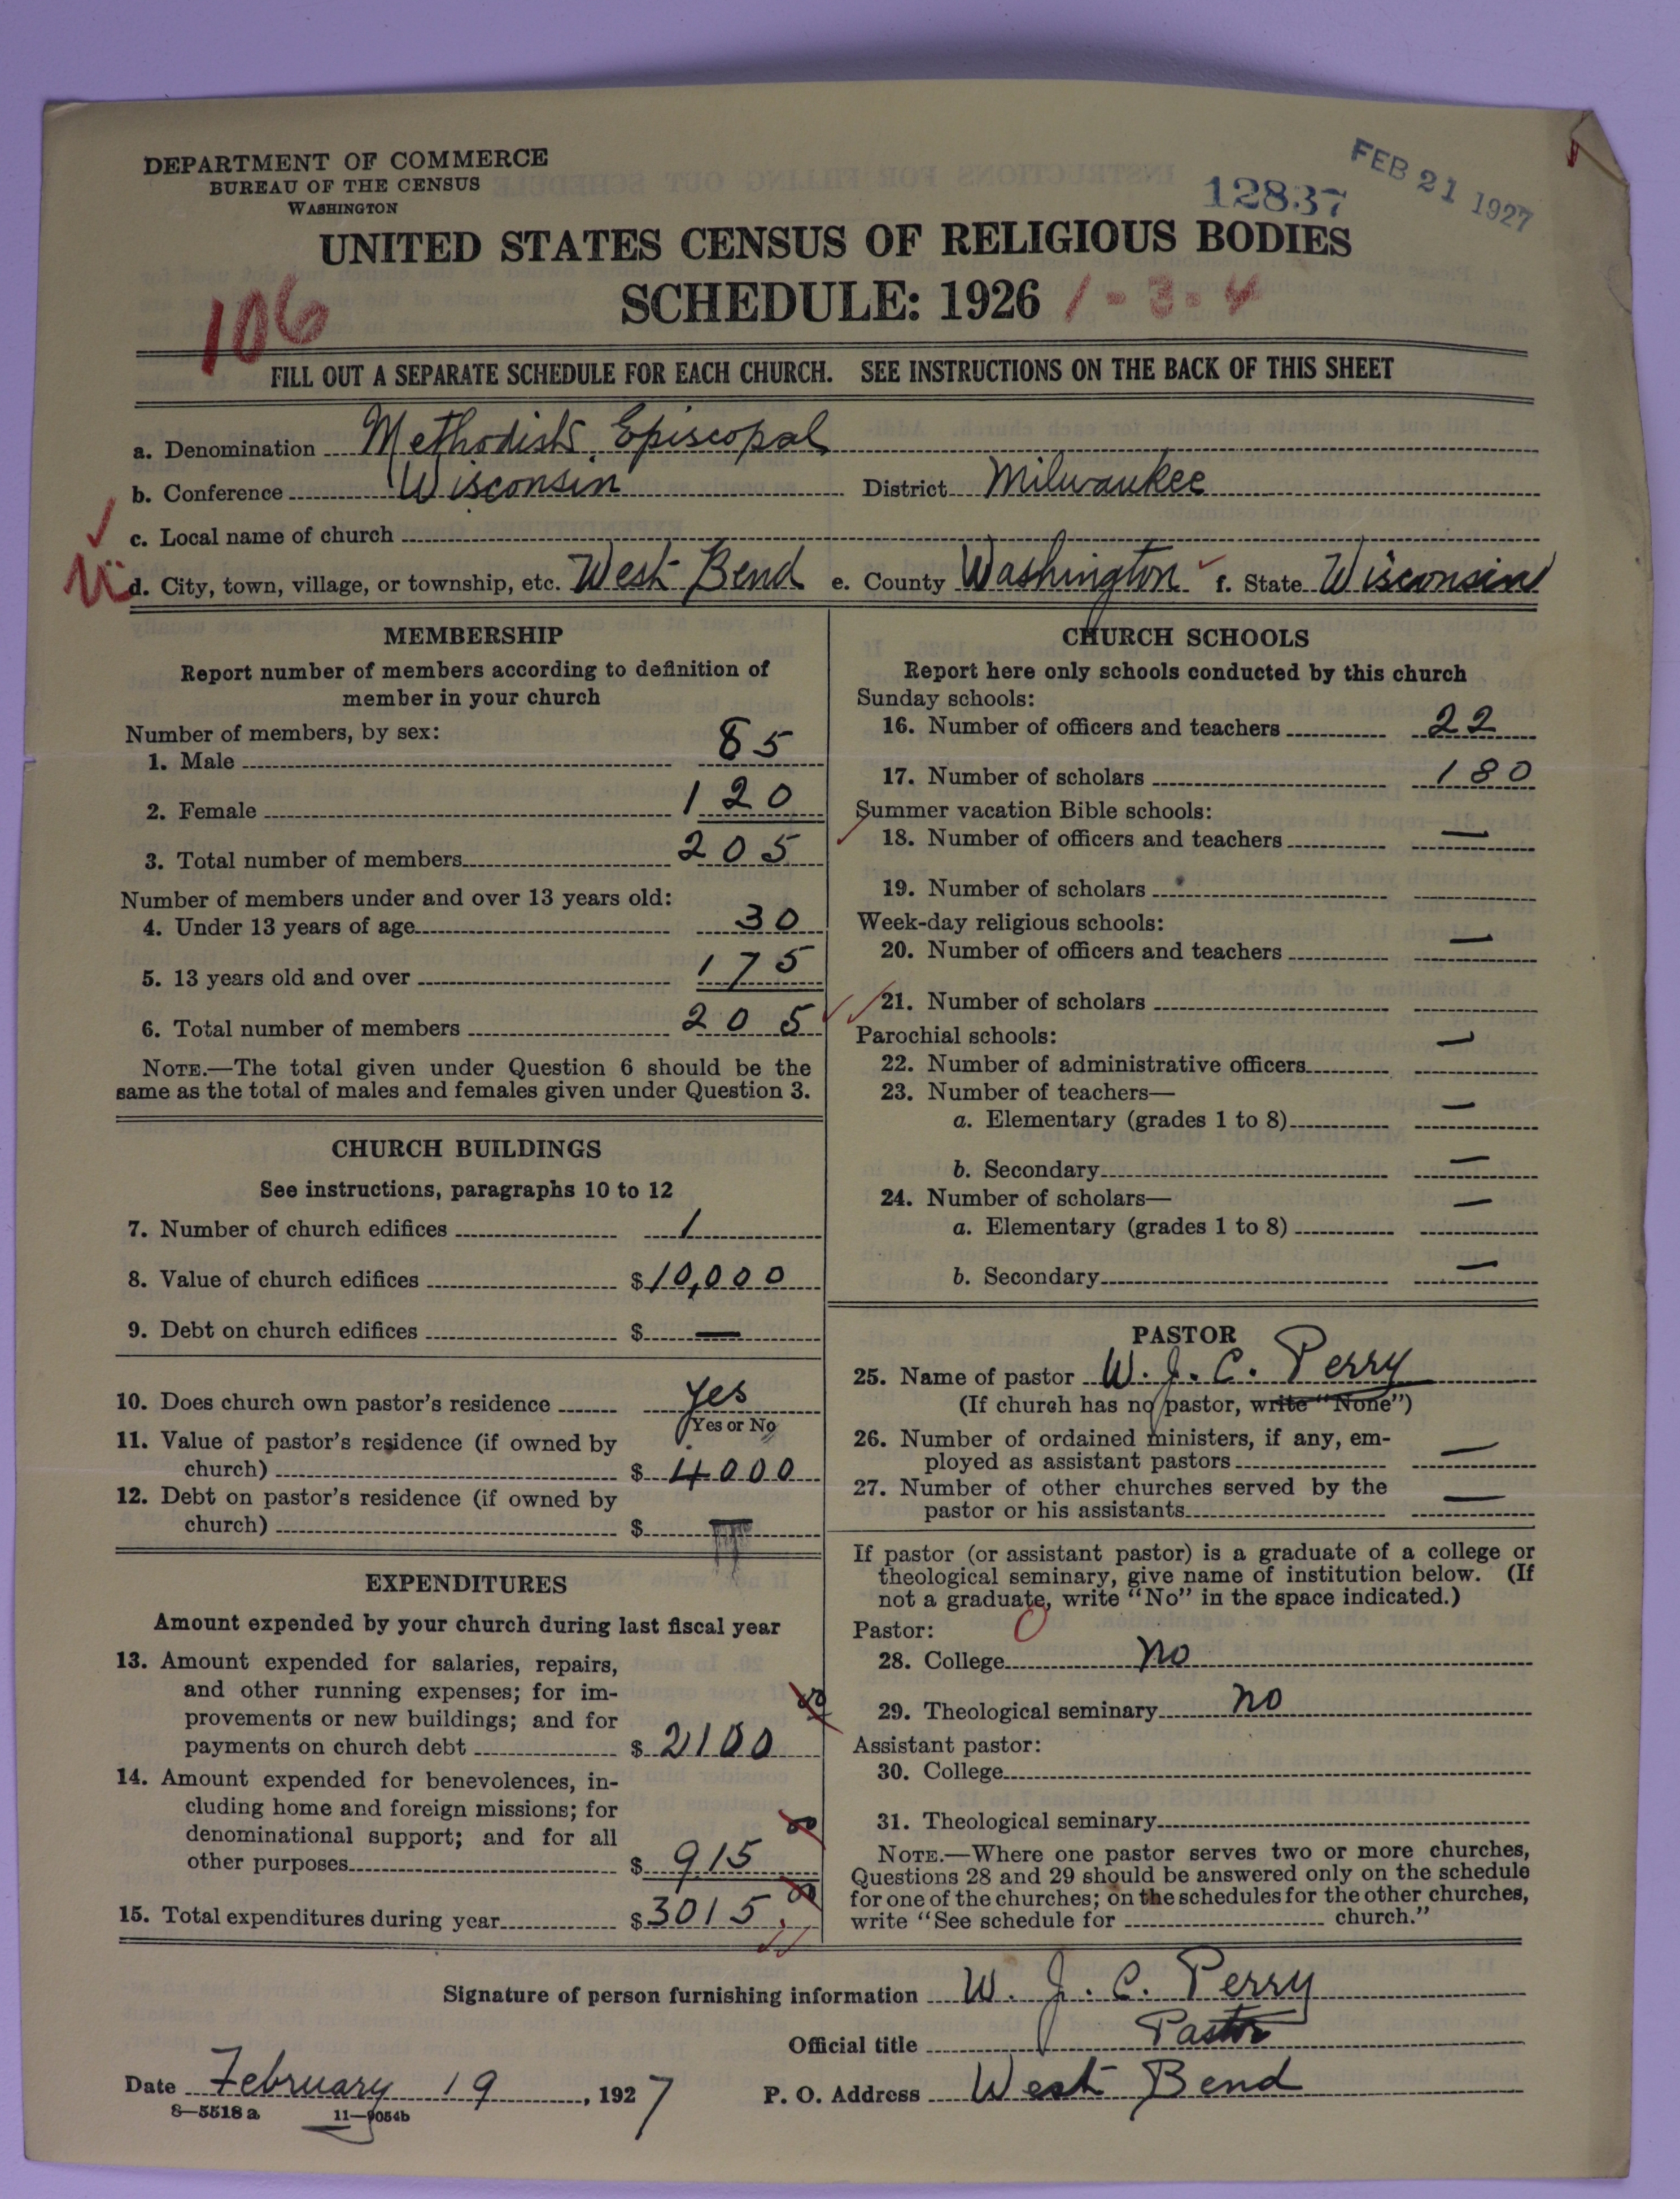 DEPARTMENT OF COMMERCE
BUREAU OF THE CENSUS
WASHINGTON
12837
FEB 21 1927
UNITED STATES CENSUS OF RELIGIOUS BODIES
106
SCHEDULE: 1926 1-3-4
FILL OUT A SEPARATE SCHEDULE FOR EACH CHURCH. SEE INSTRUCTIONS ON THE BACK OF THIS SHEET
a. Denomination Methodist Episcopal
b. Conference Wisconsin District Milwaukee
c. Local name of church
d. City, town, village, or township, etc. West Bend e. County Washington f. State Wisconsin
MEMBERSHIP
Report number of members according to definition of
member in your church
Number of members, by sex:
1. Male 85
2. Female 120
3. Total number of members 205
Number of members under and over 13 years old:
4. Under 13 years of age 30
5. 13 years old and over 175
6. Total number of members 205
NOTE.—The total given under Question 6 should be the
same as the total of males and females given under Question 3.
CHURCH BUILDINGS
See instructions, paragraphs 10 to 12
7. Number of church edifices 1
8. Value of church edifices $10,000
9. Debt on church edifices $ —
10. Does church own pastor's residence Yes
Yes or No
11. Value of pastor's residence (if owned by
church) $ 4000
12. Debt on pastor's residence (if owned by
church) $ —
EXPENDITURES
Amount expended by your church during last fiscal year
13. Amount expended for salaries, repairs,
and other running expenses; for im-
provements or new buildings; and for
payments on church debt $ 2100 00
14. Amount expended for benevolences, in-
cluding home and foreign missions; for
denominational support; and for all
other purposes $ 915 00
15. Total expenditures during year $ 3015.00
CHURCH SCHOOLS
Report here only schools conducted by this church
Sunday schools:
16. Number of officers and teachers 22
17. Number of scholars 180
Summer vacation Bible schools:
18. Number of officers and teachers —
19. Number of scholars
Week-day religious schools:
20. Number of officers and teachers —
21. Number of scholars
Parochial schools:
22. Number of administrative officers —
23. Number of teachers—
a. Elementary (grades 1 to 8) —
b. Secondary —
24. Number of scholars—
a. Elementary (grades 1 to 8) —
b. Secondary —
PASTOR
25. Name of pastor W. J. C. Perry
(If church has no pastor, write "None")
26. Number of ordained ministers, if any, em-
ployed as assistant pastors —
27. Number of other churches served by the
pastor or his assistants —
If pastor (or assistant pastor) is a graduate of a college or
theological seminary, give name of institution below. (If
not a graduate, write "No" in the space indicated.)
Pastor:
28. College no
29. Theological seminary no
Assistant pastor:
30. College
31. Theological seminary
NOTE.—Where one pastor serves two or more churches,
Questions 28 and 29 should be answered only on the schedule
for one of the churches; on the schedules for the other churches,
write "See schedule for church."
Signature of person furnishing information W. J. C. Perry
Official title Pastor
Date February 19, 1927 P. O. Address West Bend
8—5518 a 11—9054b